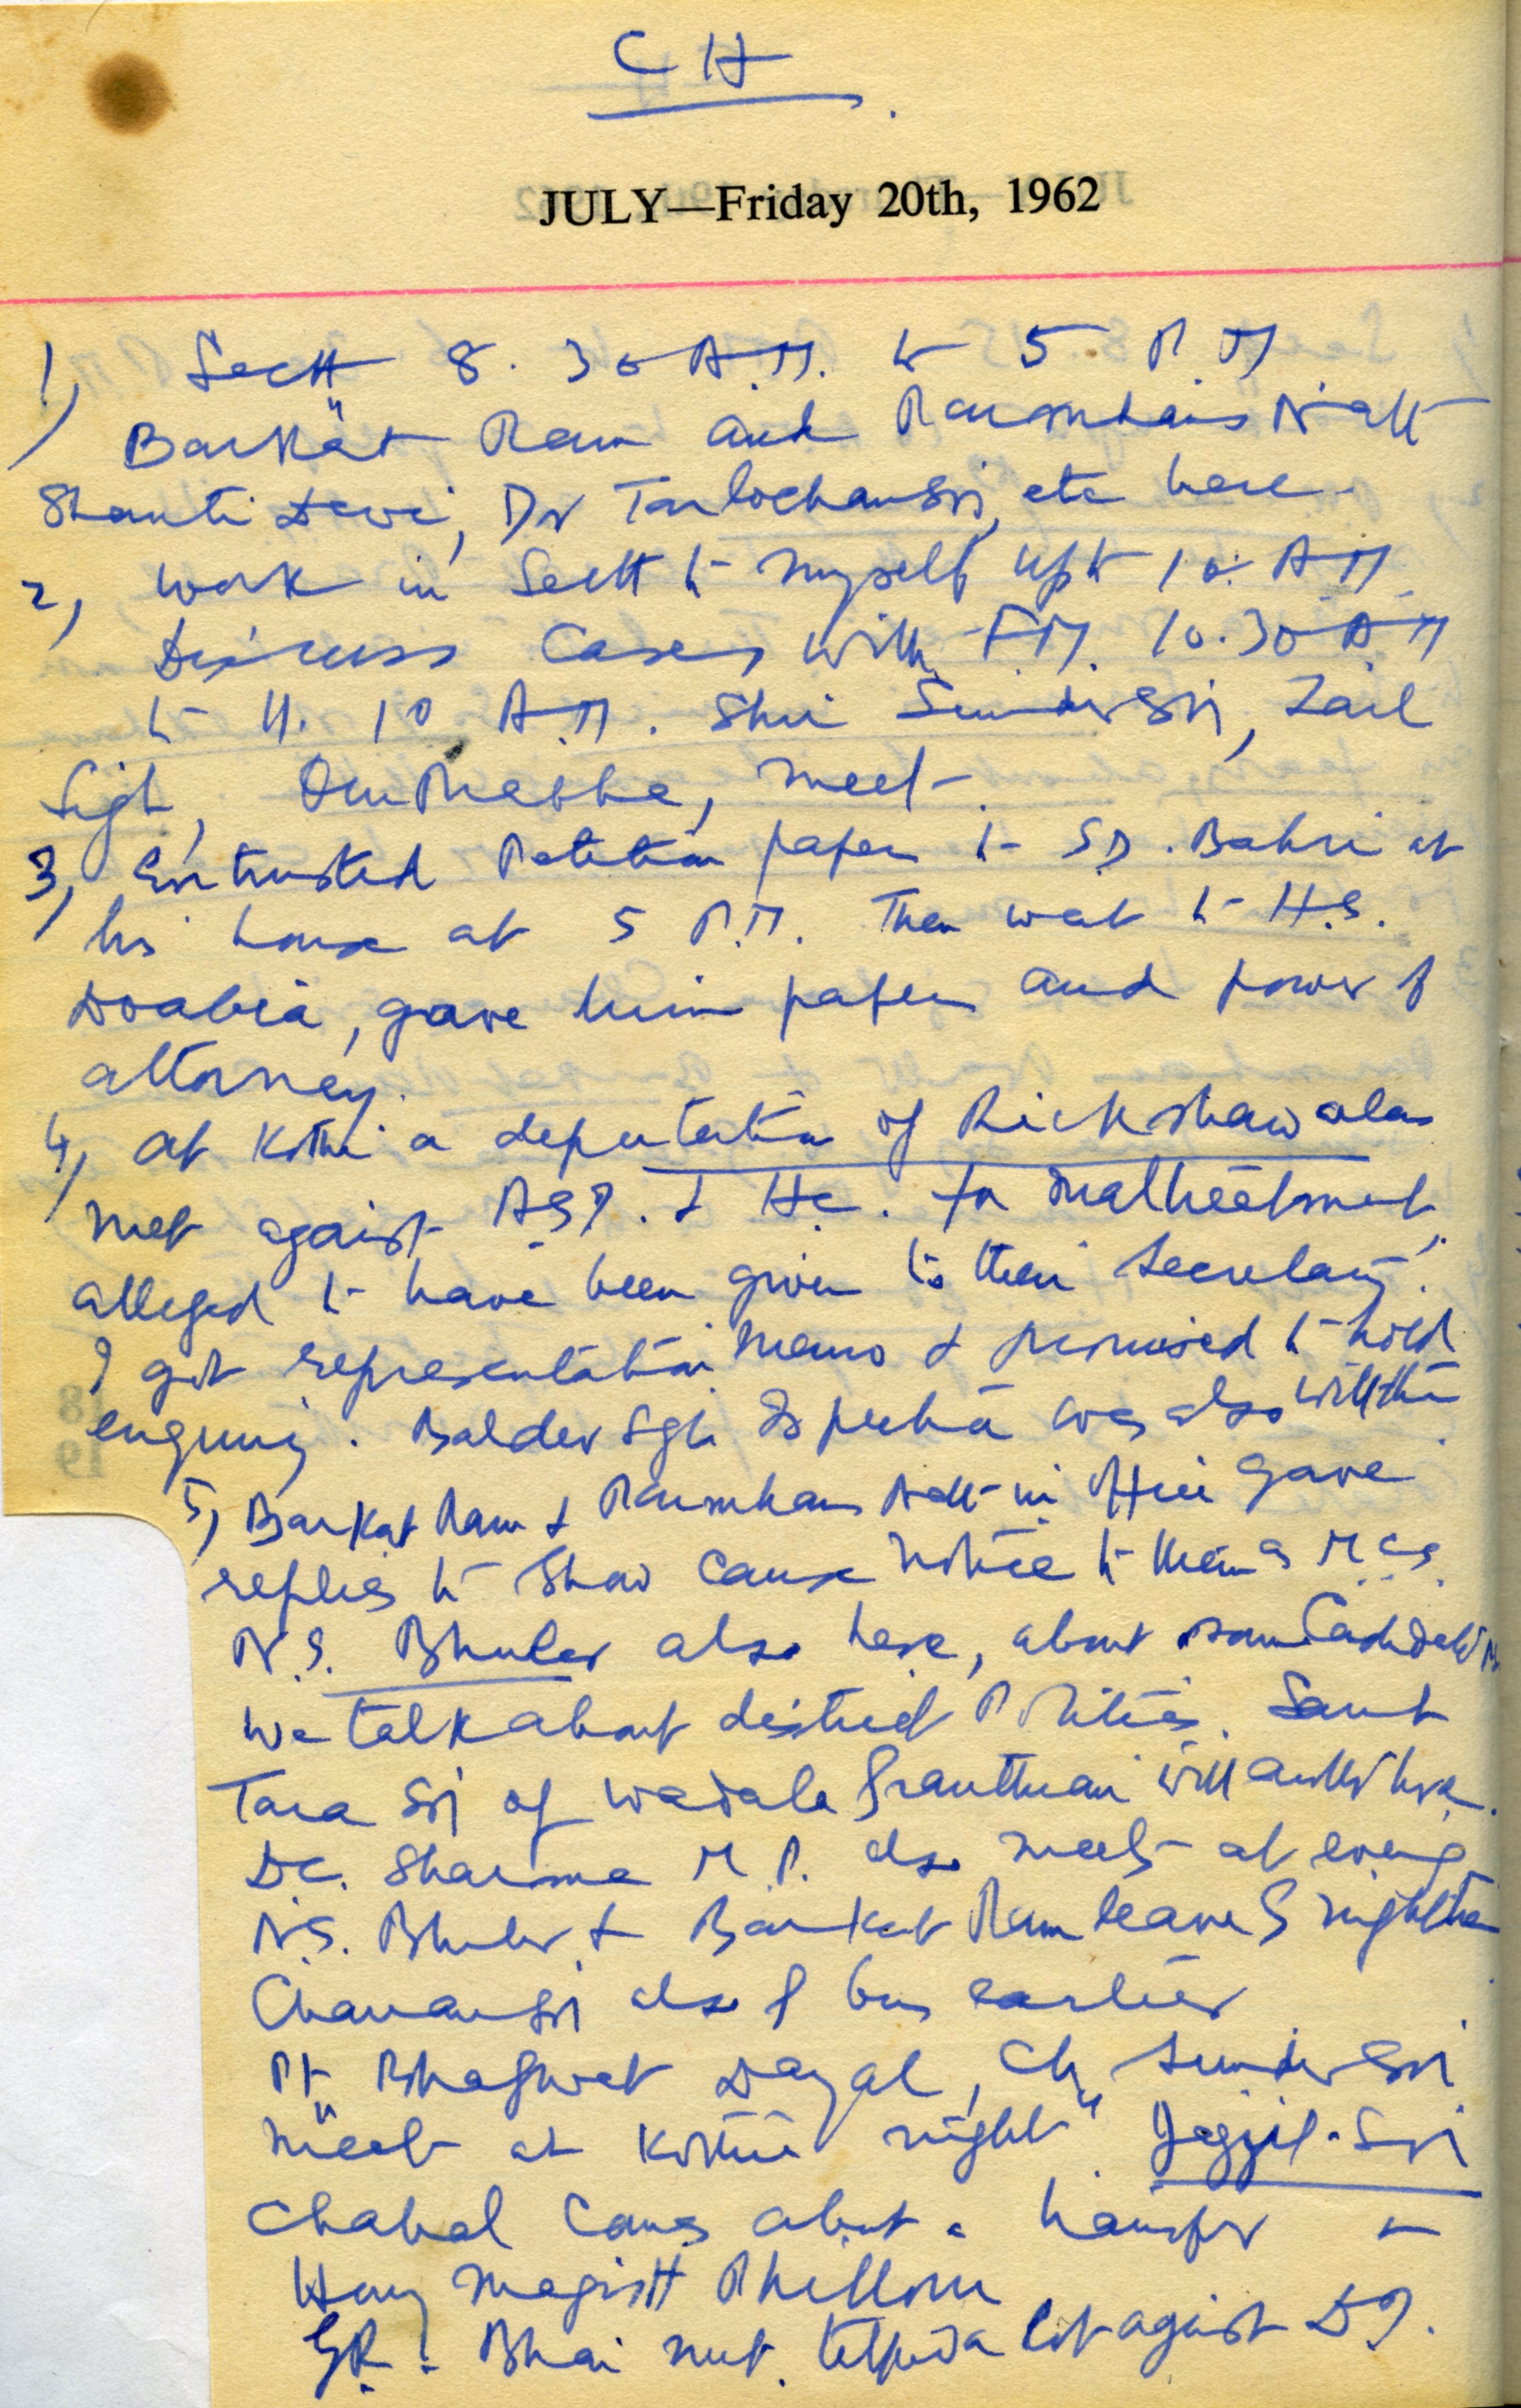 CH
JULY—Friday 20th, 1962
1) Sectt 8.30 A.M. to 5 P.M
Barkat Ram and Ramsharn Natt
Shanti Devi, Dr Tarlochan Sri, etc here
2, work in Sectt to myself upto 10. A.M
Discuss Cases with F.M. 10.30 A.M
to 11.10 A.M. Shri Sunder Sri, Zail
Sigh, Om Prabha, meet.
3, Entrusted Petition paper to S.D. Bahri at
his house at 5 P.M. Then went to H.S.
Doabia, gave him paper and power of
attorney.
4, at Kothi a deputation of Rickshaw alas
met against ASI. & H.C. for maltreatment,
alleged to have been given to their Secretary.
I got representation memo & promised to hold
enquiry. Baldev Sgh was also with them
5, Barkat Ram & Natt in Office gave
replies to Show Cause Notice to them as M.C.s.
N.S. Bhuler also here, about some
We talk about district Politics. Sant
Tara Sri of Wadala Granthian will here.
D.C. Sharma M.P. also meets at eveng
N.S. Bhuler & Barkat Ram leave
Charan Sri also by bus earlier
Pt Bhagwat Dayal, Ch Sunder Sri
meet at Kothi night. Jagjit Sri
Chahal comes about a transfer
Hony Magistt Phillour